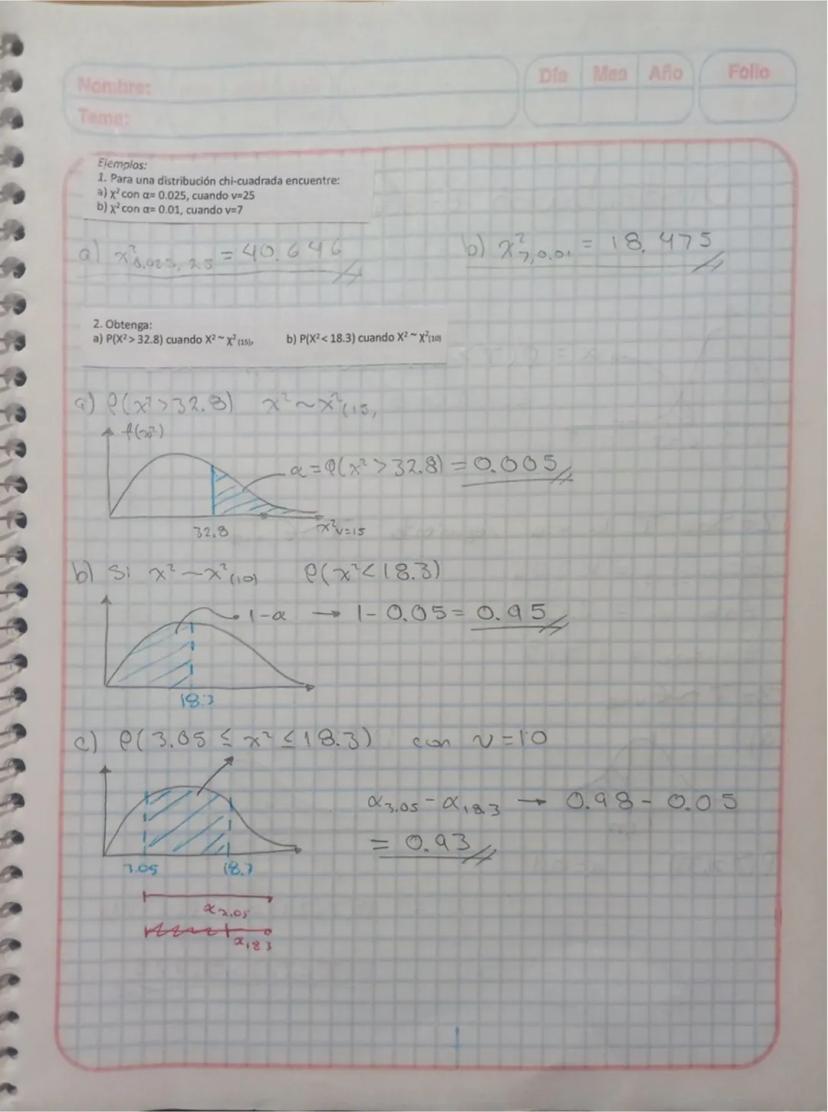 Nombre:
Tema:
Día Mes Año Folio
Ejemplos:
1. Para una distribución chi-cuadrada encuentre:
a) χ² con α= 0.025, cuando v=25
b) χ² con α= 0.01, cuando v=7
a) x²0.025, 25 = 40.646 b) x²7,0.01 = 18.475
2. Obtenga:
a) P(X² > 32.8) cuando X² ~ χ²(15), b) P(X² < 18.3) cuando X² ~ χ²(10)
a) P(x² > 32.8) x² ~ x²(15,
f(x²)
α = P(x² > 32.8) = 0.005
32.8 x² v=15
b) Si x² ~ x²(10) P(x² < 18.3)
1-α → 1 - 0.05 = 0.95
18.3
c) P(3.05 ≤ x² ≤ 18.3) con v=10
α3.05 - α18.3 → 0.98 - 0.05
= 0.93
3.05 18.3
α3.05
α18.3